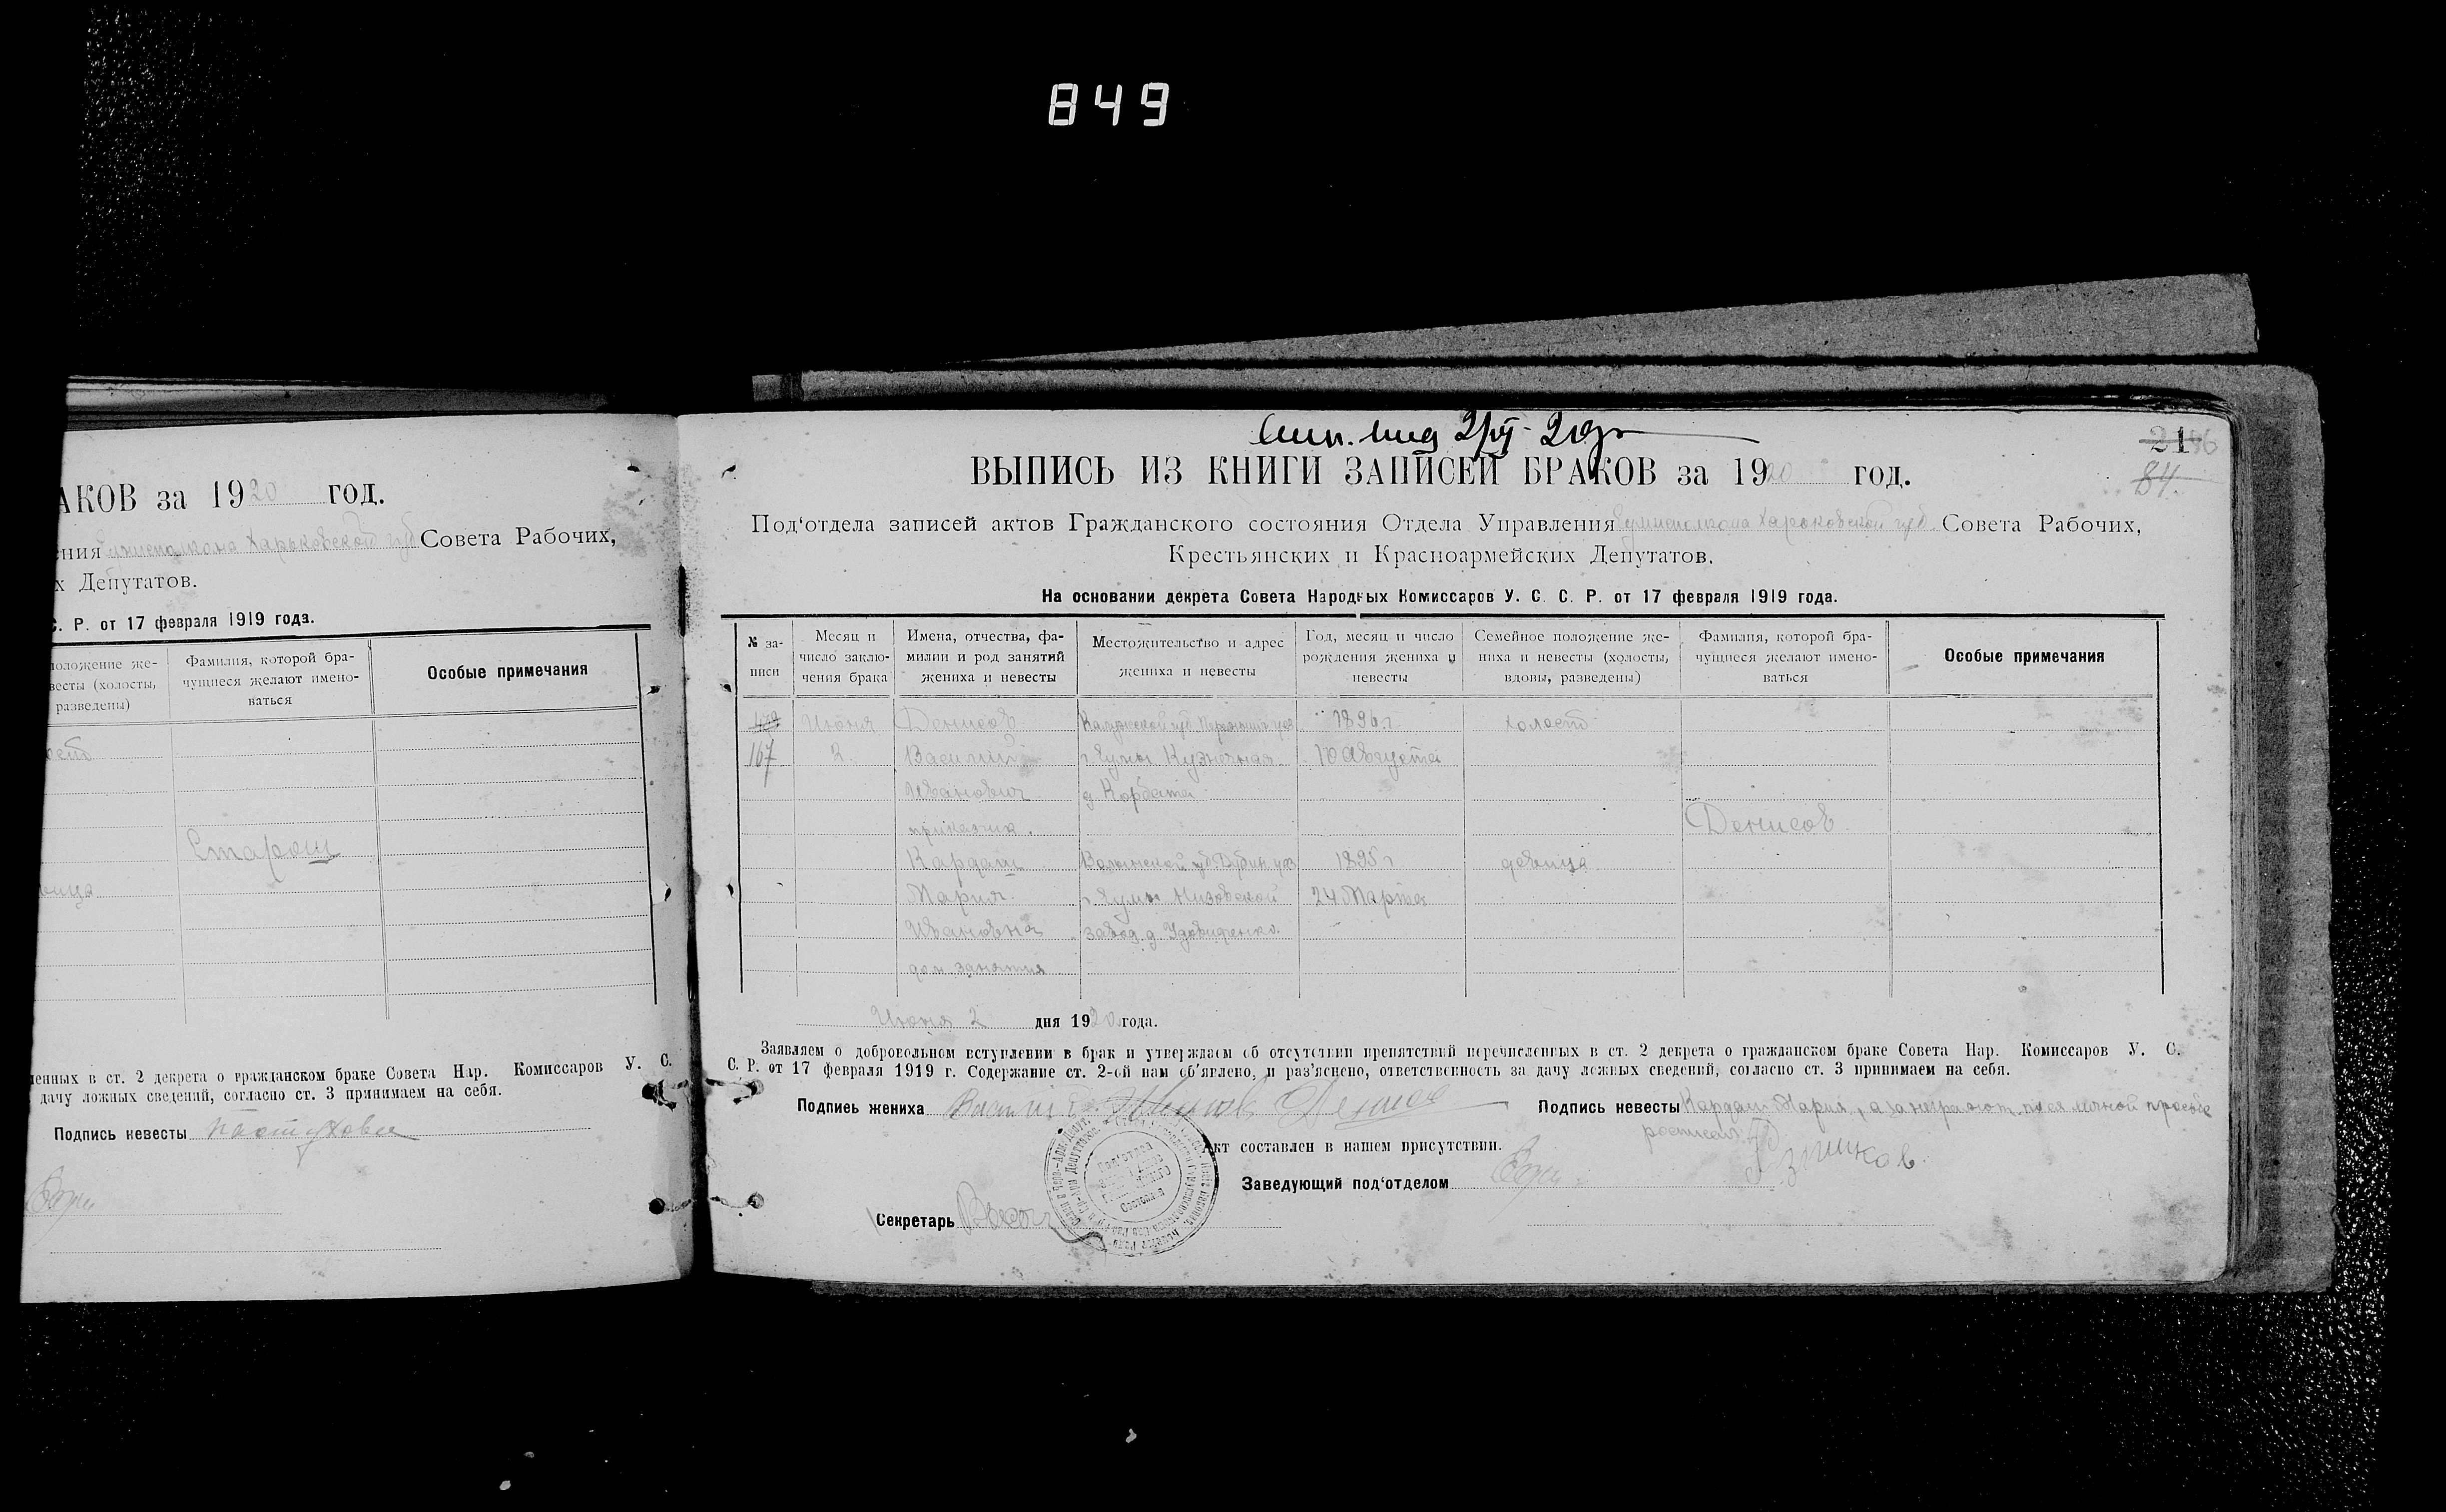 849
АКОВ за 1920 год.
ния Сумисполкома Харьковской губ Совета Рабочих,
х Депутатов.
С. Р. от 17 февраля 1919 года.
положение же-
весты (холосты,
разведены)
Фамилия, которой бра-
чущиеся желают имено-
ваться
Особые примечания
Старош
вица
ленных в ст. 2 декрета о гражданском браке Совета Нар. Комиссаров У. С.
дачу ложных сведений, согласно ст. 3 принимаем на себя.
Подпись невесты
2/VI-20г
ВЫПИСЬ ИЗ КНИГИ ЗАПИСЕЙ БРАКОВ за 1920 год.
21
84
Под‘отдела записей актов Гражданского состояния Отдела Управления Сумисполкома Харьковской губ. Совета Рабочих,
Крестьянских и Красноармейских Депутатов.
На основании декрета Совета Народных Комиссаров У. С. С. Р. от 17 февраля 1919 года.
№ за-
писи
Месяц и
число заклю-
чения брака
Имена, отчества, фа-
милии и род занятий
жениха и невесты
Местожительство и адрес
жениха и невесты
Год, месяц и число
рождения жениха и
невесты
Семейное положение же-
ниха и невесты (холосты,
вдовы, разведены)
Фамилия, которой бра-
чущиеся желают имено-
ваться
Особые примечания
Июня Денисов Калужской губ. уез 1896 г. холост
167 2 Василий г. Сумы Кузнечная 10 августа
Иванович д. Корбата
приказчик. Денисов
Кардаш Волынской губ. Дубин. уез 1895 г девица
Мария г. Сумы Низовской 24 Марта
Ивановна завод. д. Удовиченко.
дом. занятия
Июня 2 дня 1920 года.
Заявляем о добровольном вступлении в брак и утверждаем об отсутствии препятствий перечисленных в ст. 2 декрета о гражданском браке Совета Нар. Комиссаров У. С.
С. Р. от 17 февраля 1919 г. Содержание ст. 2-ой нам об‘явлено, и раз‘яснено, ответственность за дачу ложных сведений, согласно ст. 3 принимаем на себя.
Подпись жениха Василий Денисов
Подпись невесты Кардаш Мария, а за неграмот. по ея личной просьбе
росписался
Акт составлен в нашем присутствии.
Заведующий под‘отделом
Секретарь